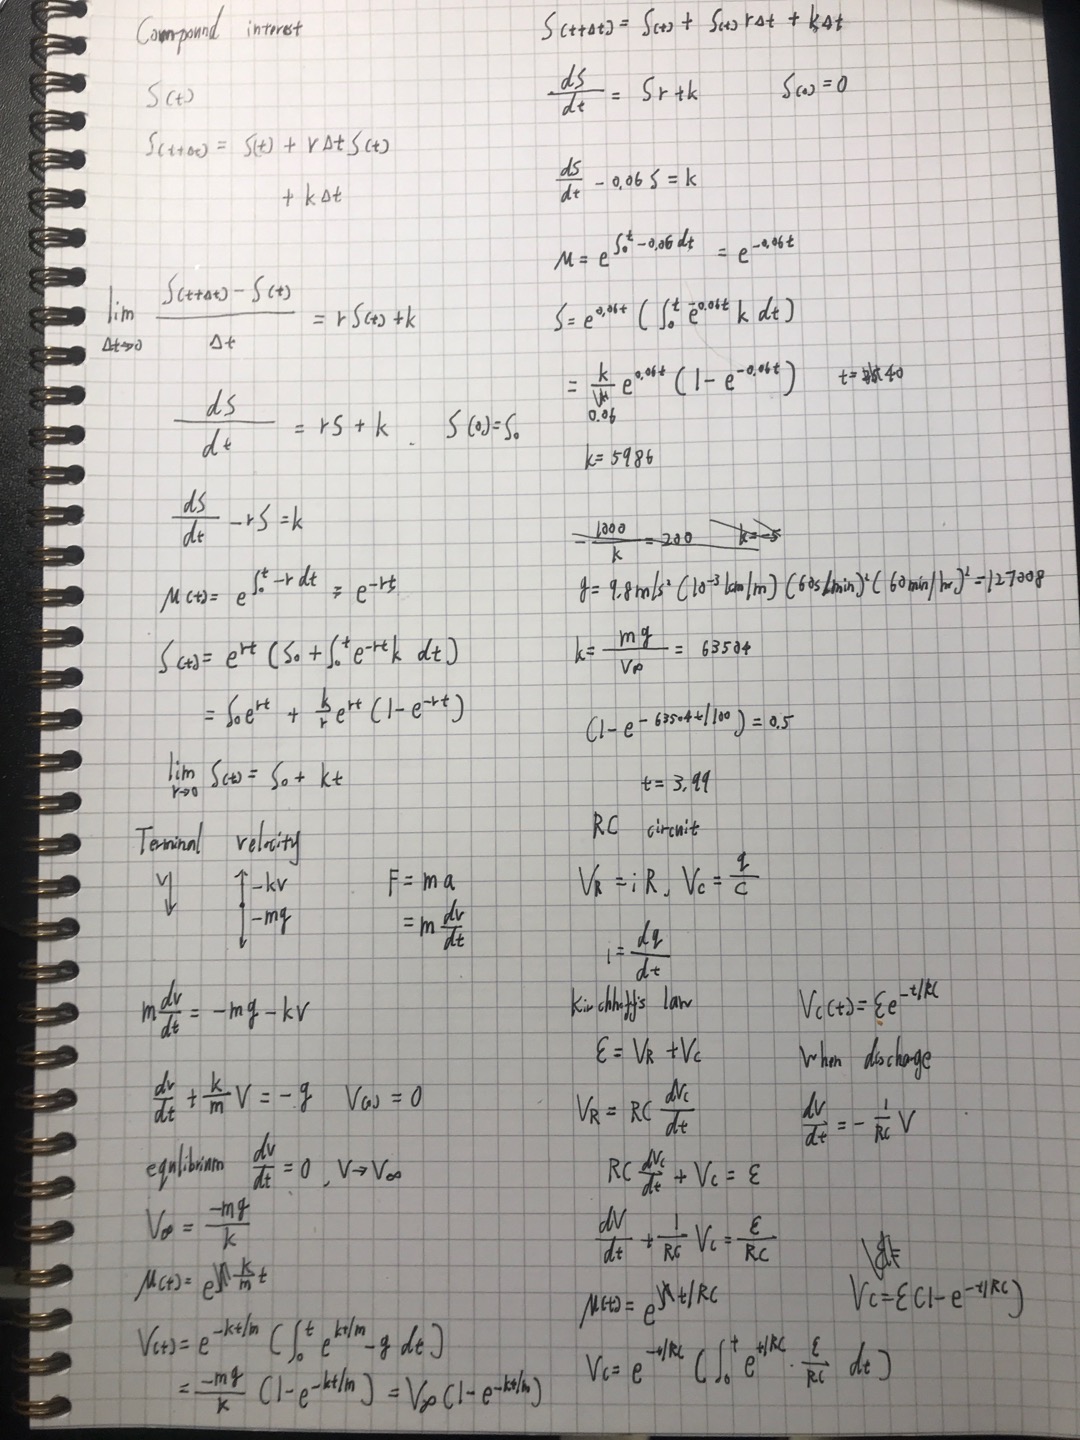 Compound interest
S(t)
S(t+Δt) = S(t) + rΔt S(t)
+ kΔt
lim Δt→0 (S(t+Δt) − S(t))/Δt = rS(t) + k
dS/dt = rS + k . S(0) = S₀
dS/dt − rS = k
μ(t) = e^{∫₀ᵗ −r dt} = e^{−rt}
S(t) = e^{rt} (S₀ + ∫₀ᵗ e^{−rt} k dt)
= S₀e^{rt} + k/r e^{rt} (1 − e^{−rt})
lim r→0 S(t) = S₀ + kt
Terminal velocity
V ↓ ↑ −kv F = ma
↓ −mg = m dv/dt
m dv/dt = −mg − kv
dv/dt + k/m V = −g V(0) = 0
equlibrium dv/dt = 0 , V → V∞
V∞ = −mg/k
μ(t) = e^{k/m t}
V(t) = e^{−kt/m} (∫₀ᵗ e^{kt/m} −g dt)
= −mg/k (1 − e^{−kt/m}) = V∞ (1 − e^{−kt/m})
S(t+Δt) = S(t) + S(t) rΔt + kΔt
dS/dt = Sr + k S(0) = 0
dS/dt − 0.06 S = k
μ = e^{∫₀ᵗ −0.06 dt} = e^{−0.06t}
S = e^{0.06t} (∫₀ᵗ e^{−0.06t} k dt)
= k/0.06 e^{0.06t} (1 − e^{−0.06t}) t = 40
k = 5986
− 1000/k = 200 k = −5
g = 9.8 m/s² (10⁻³ km/m) (60s/min)² (60 min/hr)² = 127008
k = mg/V∞ = 63504
(1 − e^{−63504t/100}) = 0.5
t = 3.99
RC circuit
V_R = iR, V_C = q/C
i = dq/dt
Kirchhoff's law
ε = V_R + V_C
V_R = RC dV_C/dt
RC dV_C/dt + V_C = ε
dV/dt + 1/RC V_C = ε/RC
μ(t) = e^{t/RC}
V_C = e^{−t/RC} (∫₀ᵗ e^{t/RC} · ε/RC dt)
V_C(t) = εe^{−t/RC}
When discharge
dV/dt = − 1/RC V
V_C = ε(1 − e^{−t/RC})